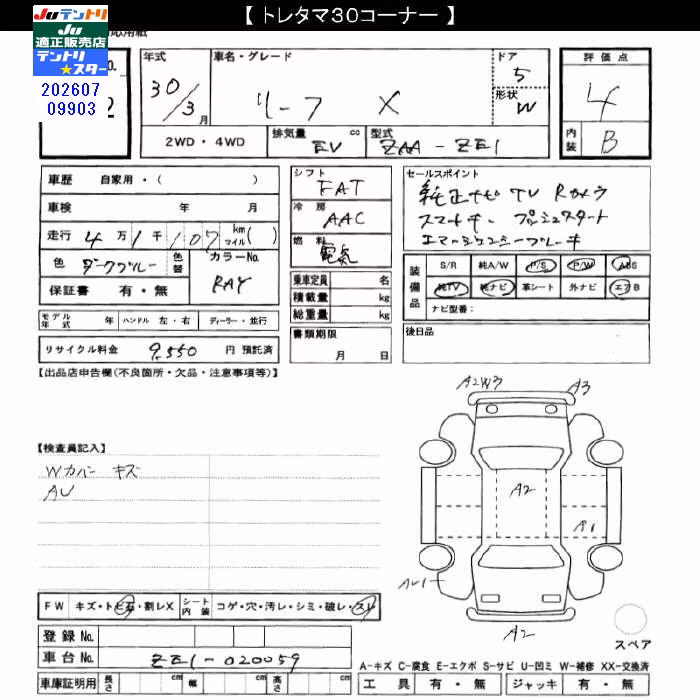 【トレタマ30コーナー】
Juテントリ
Ju
適正販売店
テントリ
★スター
応用紙
No.
2
202607
09903
年式 車名・グレード ドア 評価点
30/3月 リーフ X 5 4
形状 W
2WD・4WD 排気量 EV cc 型式 ZAA-ZE1 内装 B
車歴 自家用・( )
車検 年 月
走行 4万1千107 km マイル( )
色 ダークブルー 色替 カラーNo. RAY
保証書 有・無
モデル年式 年 ハンドル 左・右 ディーラー・並行
リサイクル料金 9,550 円 預託済
シフト FAT
冷房 AAC
燃料 電気
乗車定員 名
積載量 kg
総重量 kg
書類期限
月 日
セールスポイント
純正ナビ TV Rカメラ
スマートキー プッシュスタート
エマージェンシーブレーキ
装備品 S/R 純A/W P/S P/W ABS
純TV 純ナビ 革シート 外ナビ エアB
ナビ型番:
後日品
【出品店申告欄(不良箇所・欠品・注意事項等)】
【検査員記入】
Wカバー キズ
AU
A2W3 A3
A2
A1
AU1
A2
スペア
FW キズ・トビ石・割レX シート内装 コゲ・穴・汚レ・シミ・破レ・スレ
登録No.
車台No. ZE1-020059
車庫証明用 長さ cm 幅 cm 高さ cm
A-キズ C-腐食 E-エクボ S-サビ U-凹ミ W-補修 XX-交換済
工具 有・無 ジャッキ 有・無